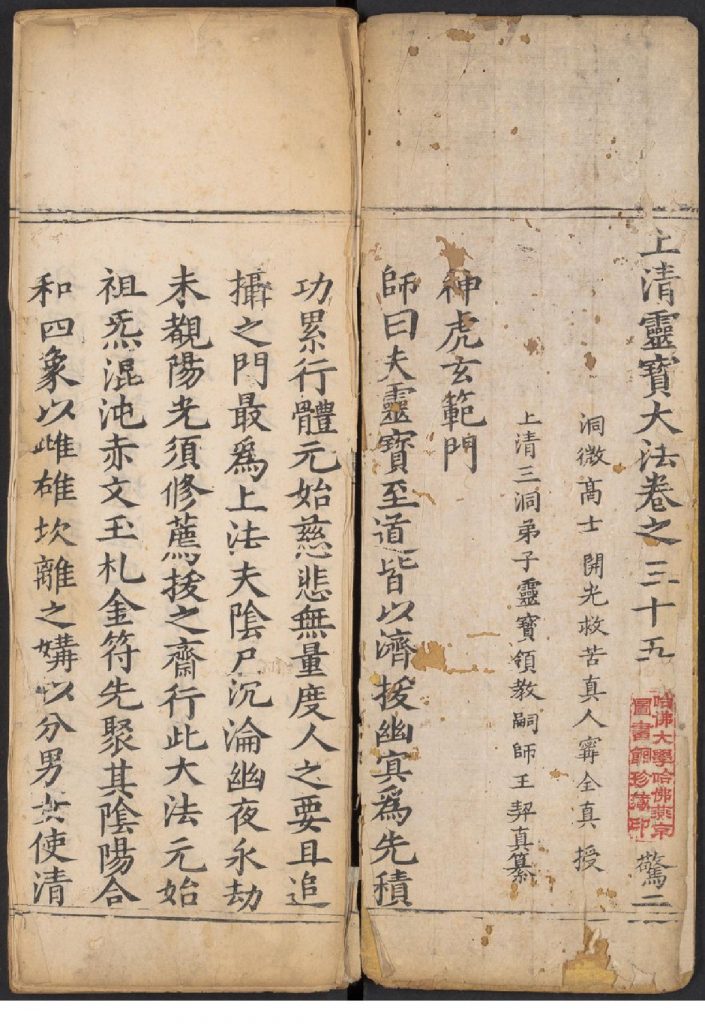 上清靈寶大法卷之三十五
驚二
哈佛大學哈佛燕京
圖書館珍藏印
洞微高士開光救苦真人寗全真授
上清三洞弟子靈寶領教嗣師王契真纂
神虎玄範門
師曰夫靈寶至道皆以濟拔幽㝠爲先積
功累行體元始慈悲無量度人之要且追
攝之門最爲上法夫陰尸沉淪幽夜永劫
未覩陽光須修薦拔之齋行此大法元始
祖炁混沌赤文玉札金符先聚其陰陽合
和四象以雌雄坎離之媾以分男女使清